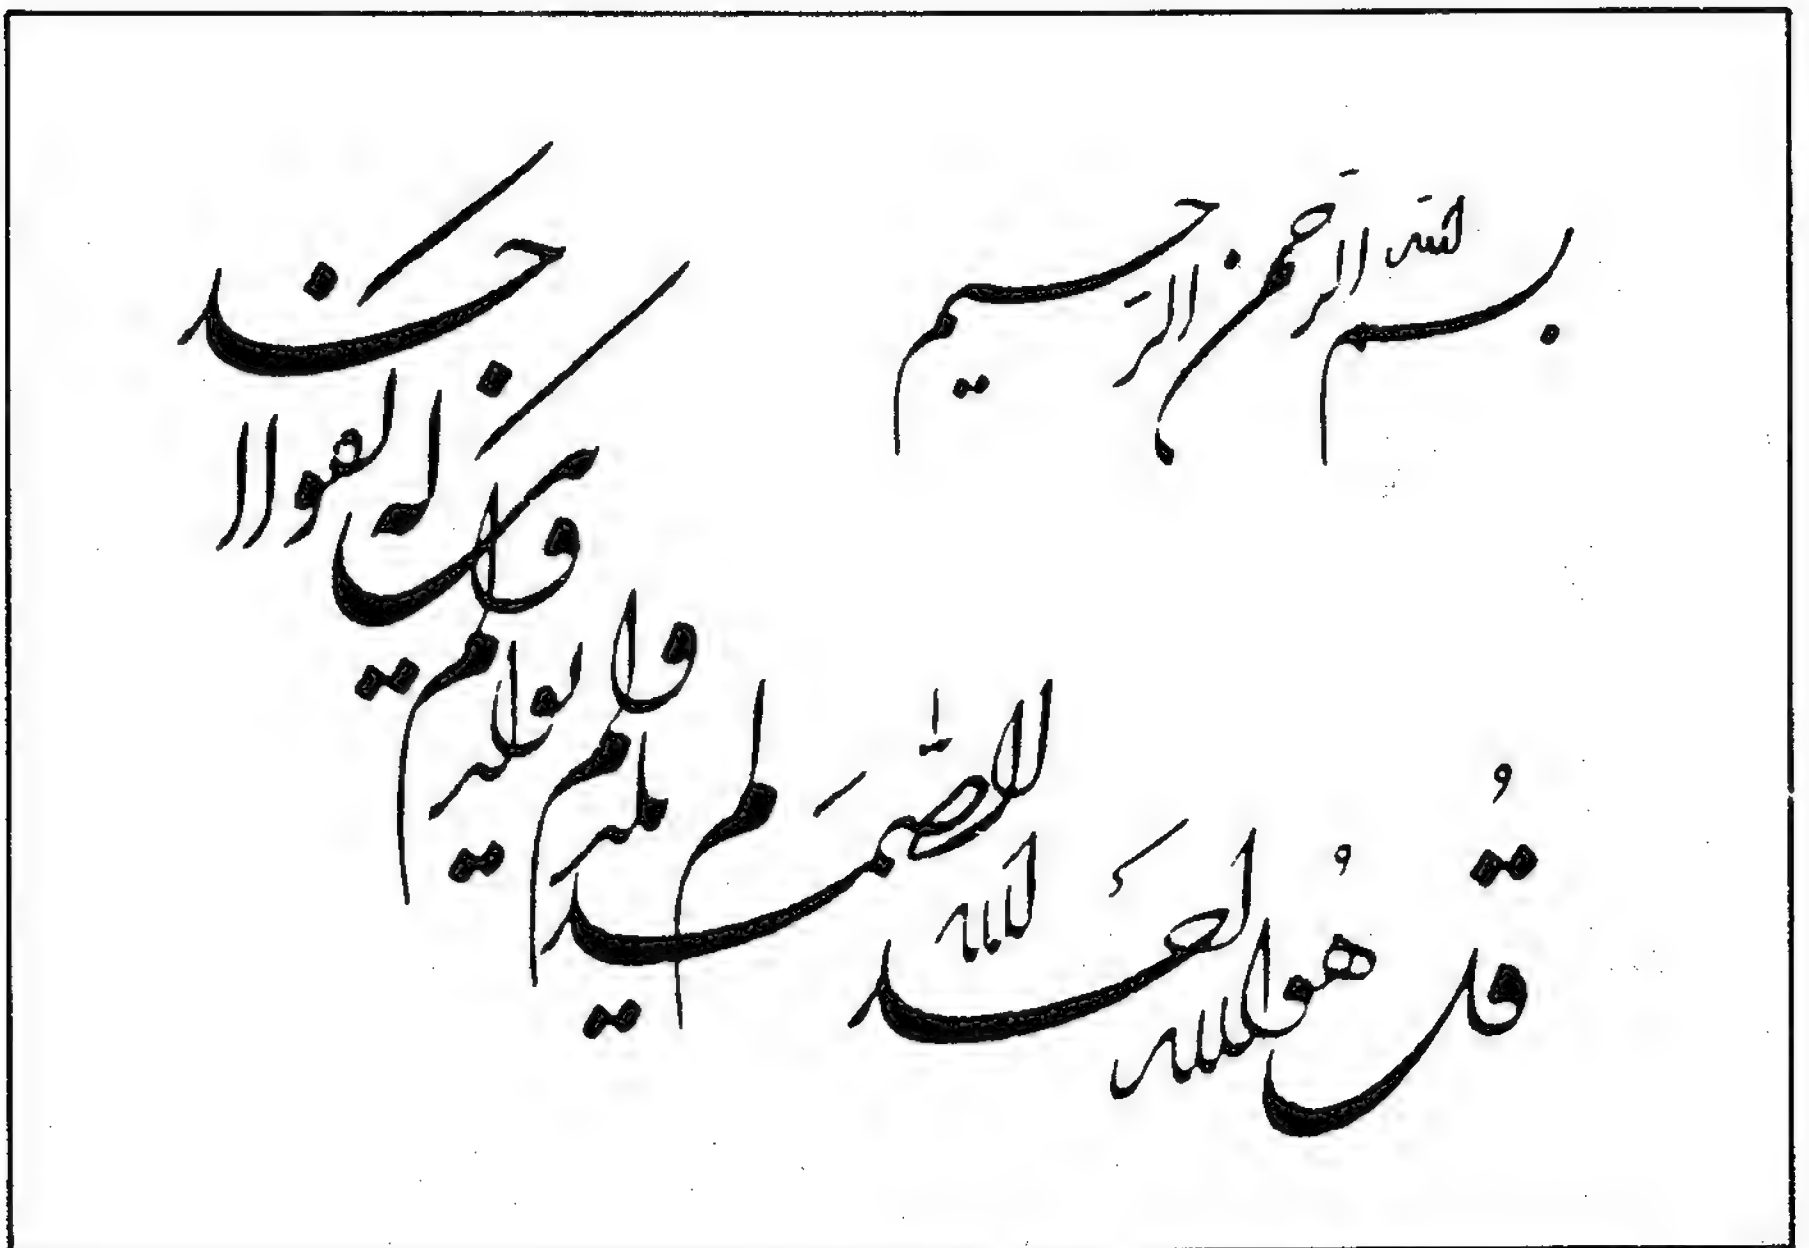 بسم الله الرحمن الرحیم
قُل هُو الله احد الله الصّمد لم یلد و لم یولد و لم یکن له کفوا احد